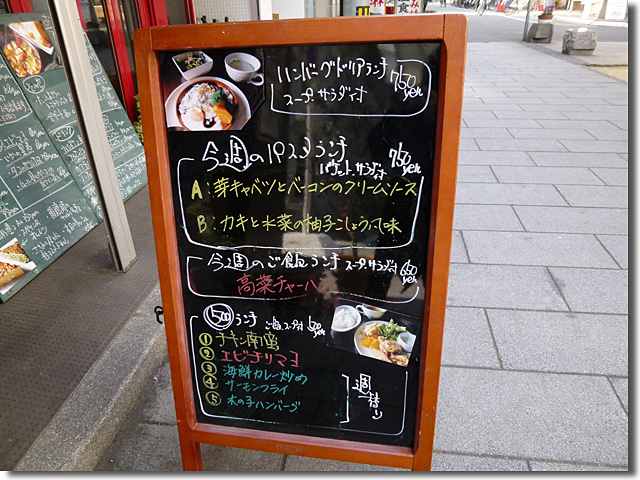 ハンバーグドリアランチ
スープ、サラダ付 750yen
今週の1923ランチ 750yen
バケット、サラダ付
A：芽キャベツとベーコンのクリームソース
B：カキと水菜の柚子こしょう味
今週のご飯ランチ スープ、サラダ付 650yen
高菜チャーハン
500ランチ ご飯、スープ付 500yen
① チキン南蛮
② エビチリマヨ
③ 海鮮カレー炒め
④ サーモンフライ
⑤ 木の子ハンバーグ
週替り